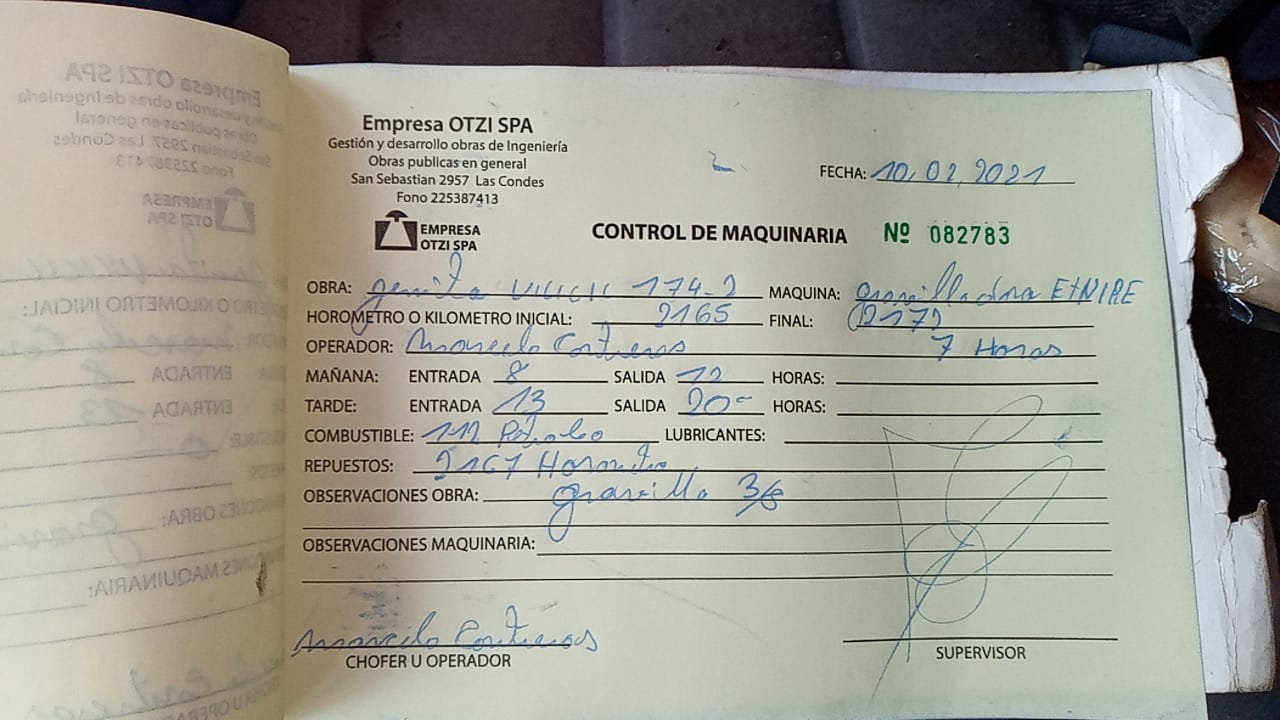 Empresa OTZI SPA
Gestión y desarrollo obras de Ingeniería
Obras publicas en general
San Sebastian 2957 Las Condes
Fono 225387413
EMPRESA
OTZI SPA
FECHA: 10.02.2021
CONTROL DE MAQUINARIA Nº 082783
OBRA: 174-2 MAQUINA: gravilladora ETNIRE
HOROMETRO O KILOMETRO INICIAL: 2165 FINAL: 2172
OPERADOR: Marcelo Contreras 7 Horas
MAÑANA: ENTRADA 8 SALIDA 12 HORAS:
TARDE: ENTRADA 13 SALIDA 20 HORAS:
COMBUSTIBLE: 112 Petroleo LUBRICANTES:
REPUESTOS: 2167 Horometro
OBSERVACIONES OBRA: gravilla 3/8
OBSERVACIONES MAQUINARIA:
Marcelo Contreras
CHOFER U OPERADOR
SUPERVISOR